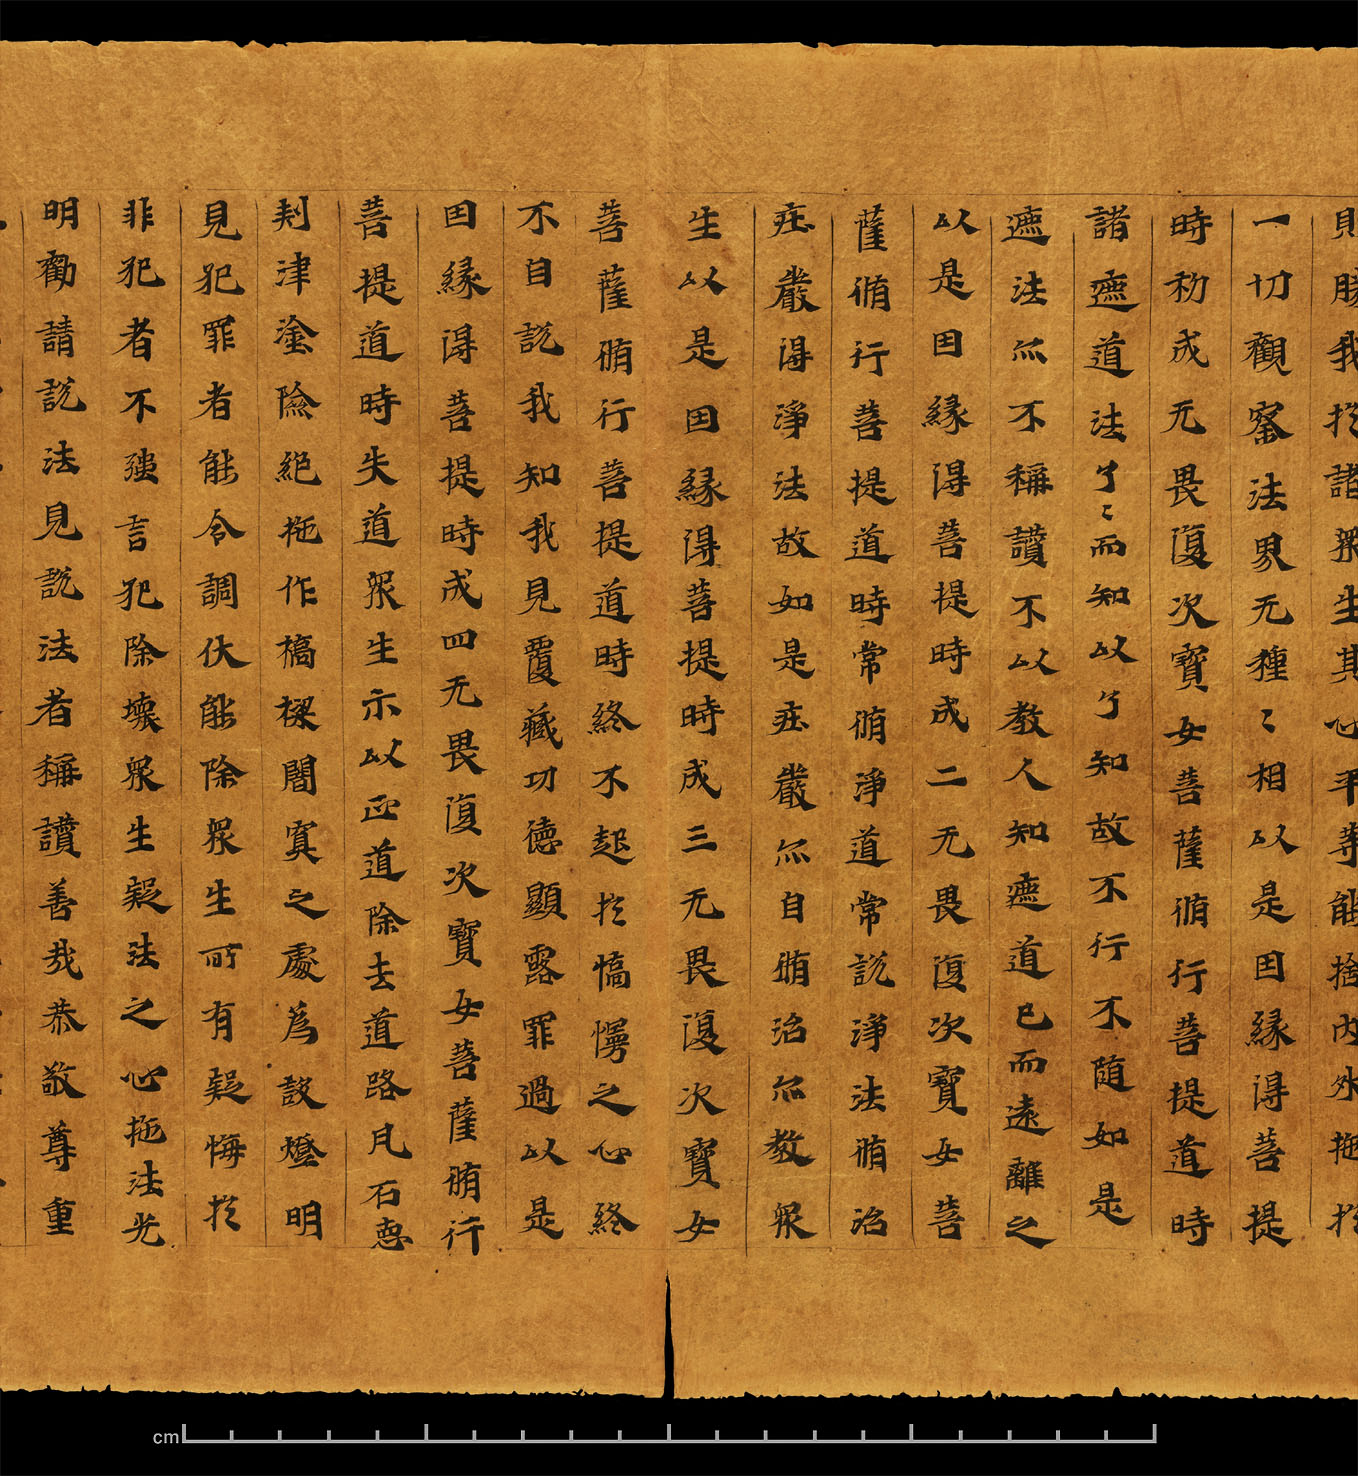 我於諸衆生其心平等能捨內外施於
一切觀察法界无種〻相以是因緣得菩提
時初成无畏復次寶女菩薩脩行菩提道時
諸遮道法了〻而知以了知故不行不隨如是
遮法尒不稱讚不以教人知遮道已而遠離之
以是因緣得菩提時成二无畏復次寶女菩
薩脩行菩提道時常脩淨道常說淨法脩治
莊嚴得淨法故如是莊嚴尒自脩治尒教衆
生以是因緣得菩提時成三无畏復次寶女
菩薩脩行菩提道時終不起於憍慢之心終
不自說我知我見覆藏功德顯露罪過以是
因緣得菩提時成四无畏復次寶女菩薩脩行
菩提道時失道衆生示以正道除去道路凡石惡
刾津塗險絕施作橋樑闇冥之處為設燈明
見犯罪者能令調伏能除衆生所有疑悔於
非犯者不強言犯除壞衆生疑法之心施法光
明勸請說法見說法者稱讚善哉恭敬尊重
cm